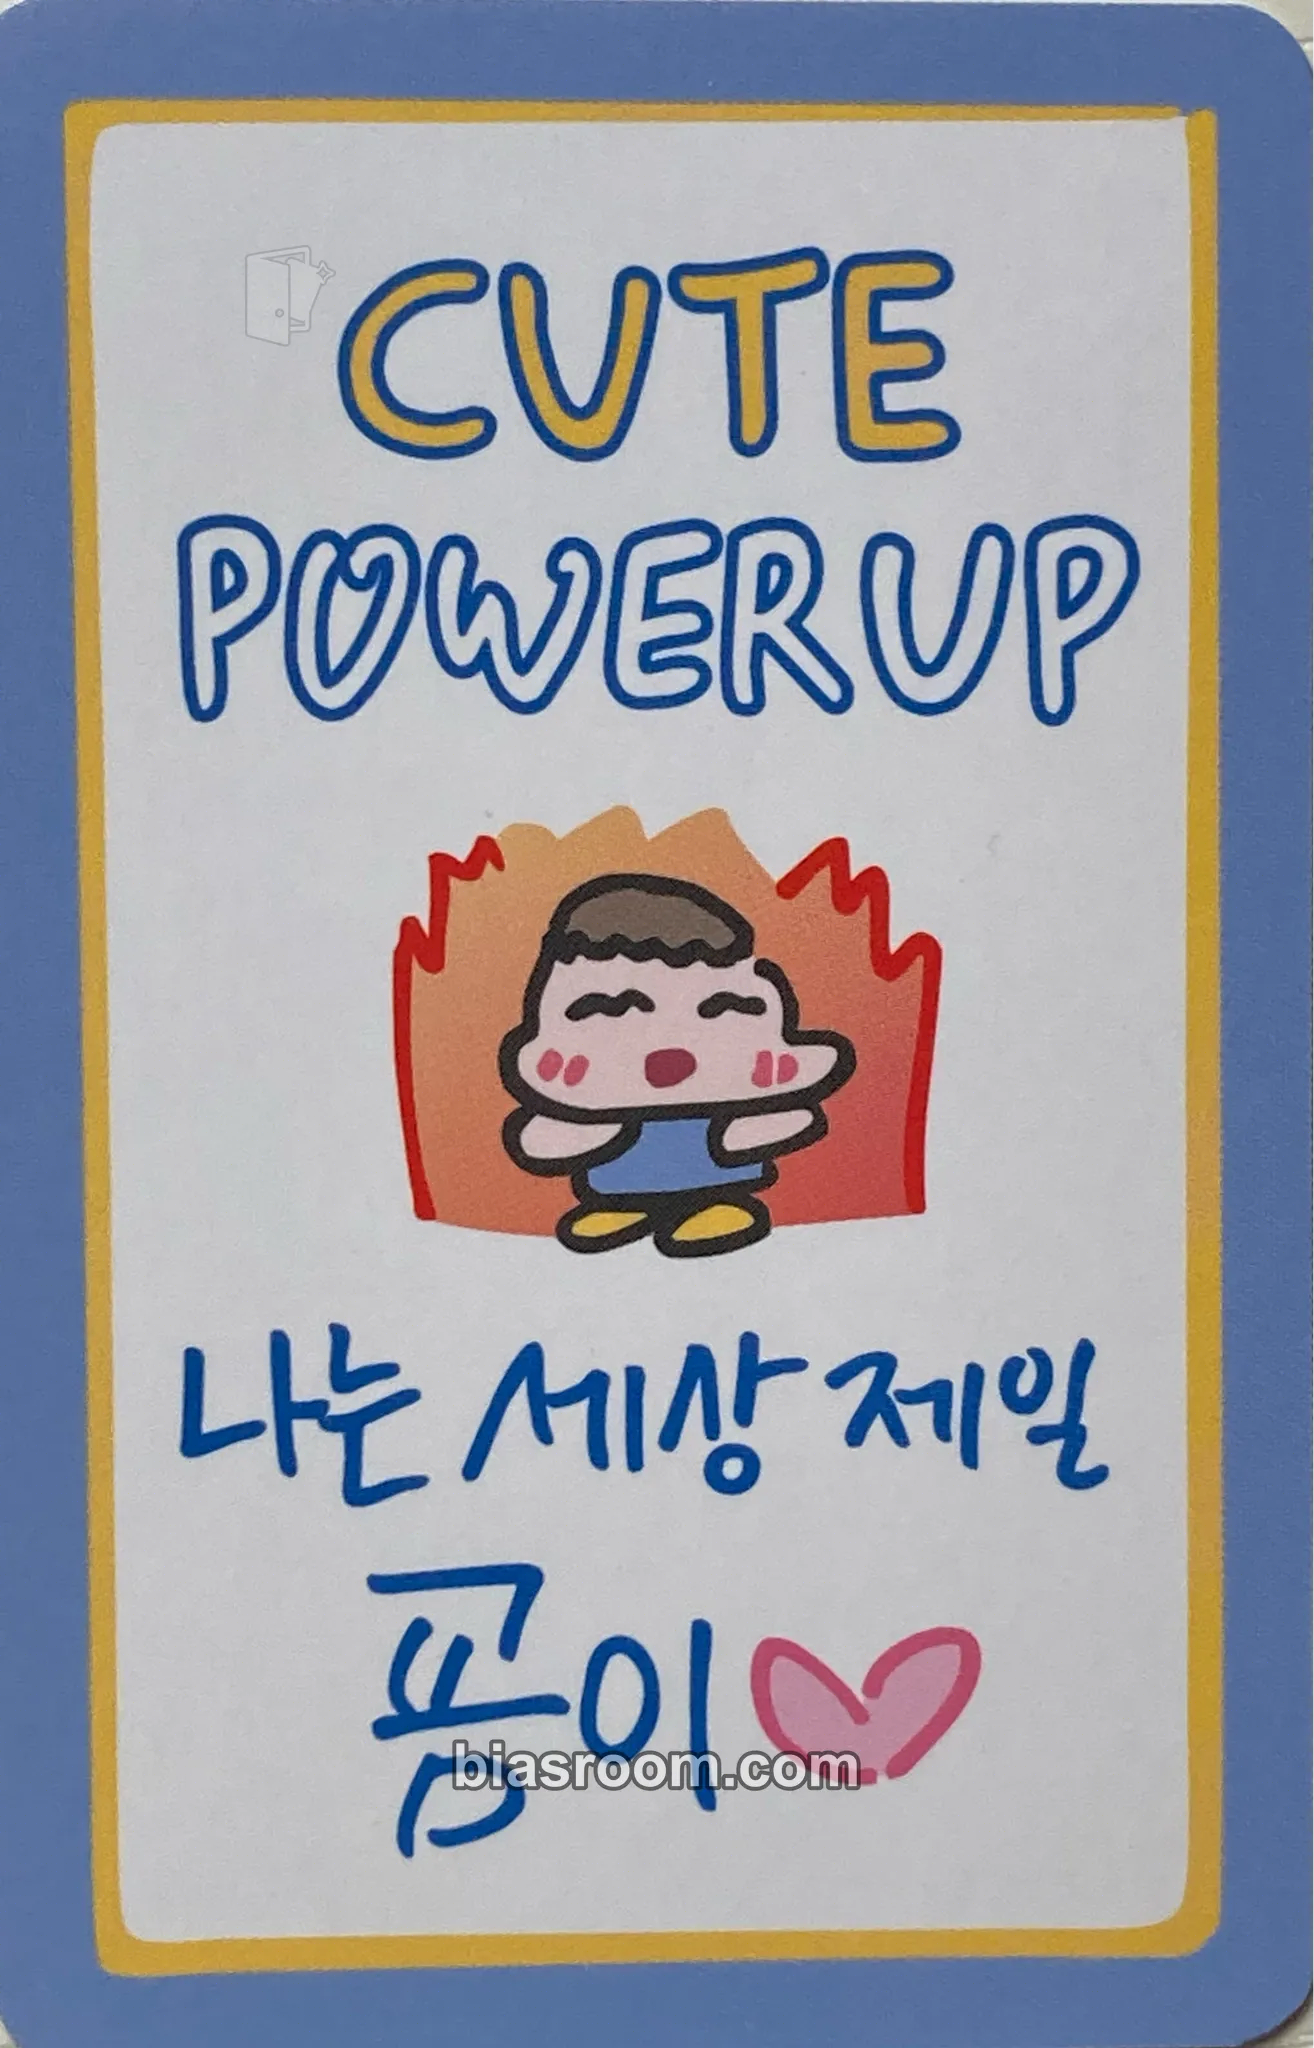 CUTE
POWER UP
나는 세상 제일
곰이♡
biasroom.com